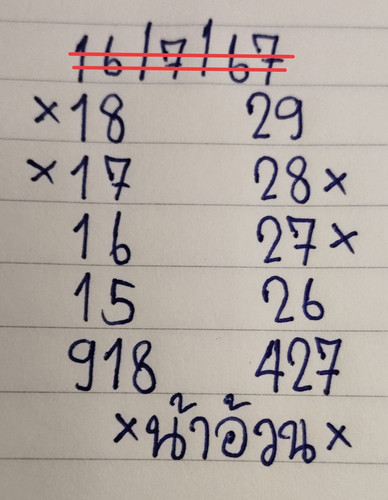 16/7/67
×18 29
×17 28×
16 27×
15 26
918 427
×น้าอ้วน×